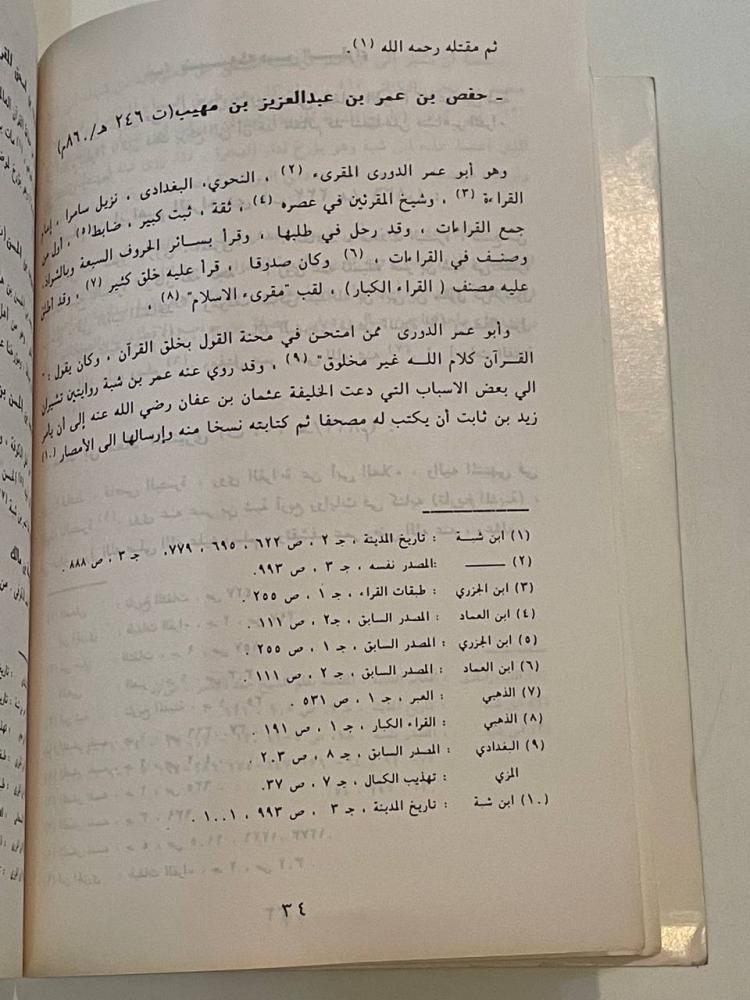 ثم مقتله رحمه الله (١).
ـ حفص بن عمر بن عبدالعزيز بن مهيب(ت ٢٤٦ هـ/٨٦٠م)
وهو أبو عمر الدورى المقرىء (٢) ، النحوي، البغدادى ، نزيل سامرا ، إمام
القراءة (٣) ، وشيخ المقرئين في عصره (٤) ، ثقة ، ثبت كبير ، ضابط(٥) ، أول من
جمع القراءات ، وقد رحل في طلبها ، وقرأ بسائر الحروف السبعة وبالشواذ
وصنف في القراءات ، (٦) وكان صدوقا ، قرأ عليه خلق كثير (٧) ، وقد أطلق
عليه مصنف ( القراء الكبار) ، لقب "مقرىء الاسلام" (٨) .
وأبو عمر الدورى ممن امتحن في محنة القول بخلق القرآن ، وكان يقول : "
القرآن كلام الله غير مخلوق" (٩) ، وقد روي عنه عمر بن شبة روايتين تشيران
الي بعض الاسباب التي دعت الخليفة عثمان بن عفان رضي الله عنه إلى أن يأمر
زيد بن ثابت أن يكتب له مصحفا ثم كتابته نسخا منه وإرسالها الى الأمصار (١٠)
(١) ابن شبة : تاريخ المدينة ، جـ ٢ ، ص ٦٢٢ ، ٦٩٥ ، ٧٧٩. جـ ٣ ، ص ٨٨٨ .
(٢) ـــــــ :المصدر نفسه ، جـ ٣ ، ص ٩٩٣.
(٣) ابن الجزري : طبقات القراء ، جـ ١ ، ص ٢٥٥ .
(٤) ابن العماد : المصدر السابق ، جـ٢ ، ص ١١١ .
(٥) ابن الجزري : المصدر السابق ، جـ ١ ، ص ٢٥٥ .
(٦) ابن العماد : المصدر السابق ، جـ ٢ ، ص ١١١ .
(٧) الذهبي : العبر ، جـ ١ ، ص ٥٣١ .
(٨) الذهبي : القراء الكبار ، جـ ١ ، ص ١٩١ .
(٩) البغدادي : المصدر السابق ، جـ ٨ ، ص ٢٠٣ .
المزي : تهذيب الكمال ، جـ ٧ ، ص ٣٧.
(١٠) ابن شبة : تاريخ المدينة ، جـ ٣ ، ص ٩٩٣ ، ١٠٠١ .
٣٤